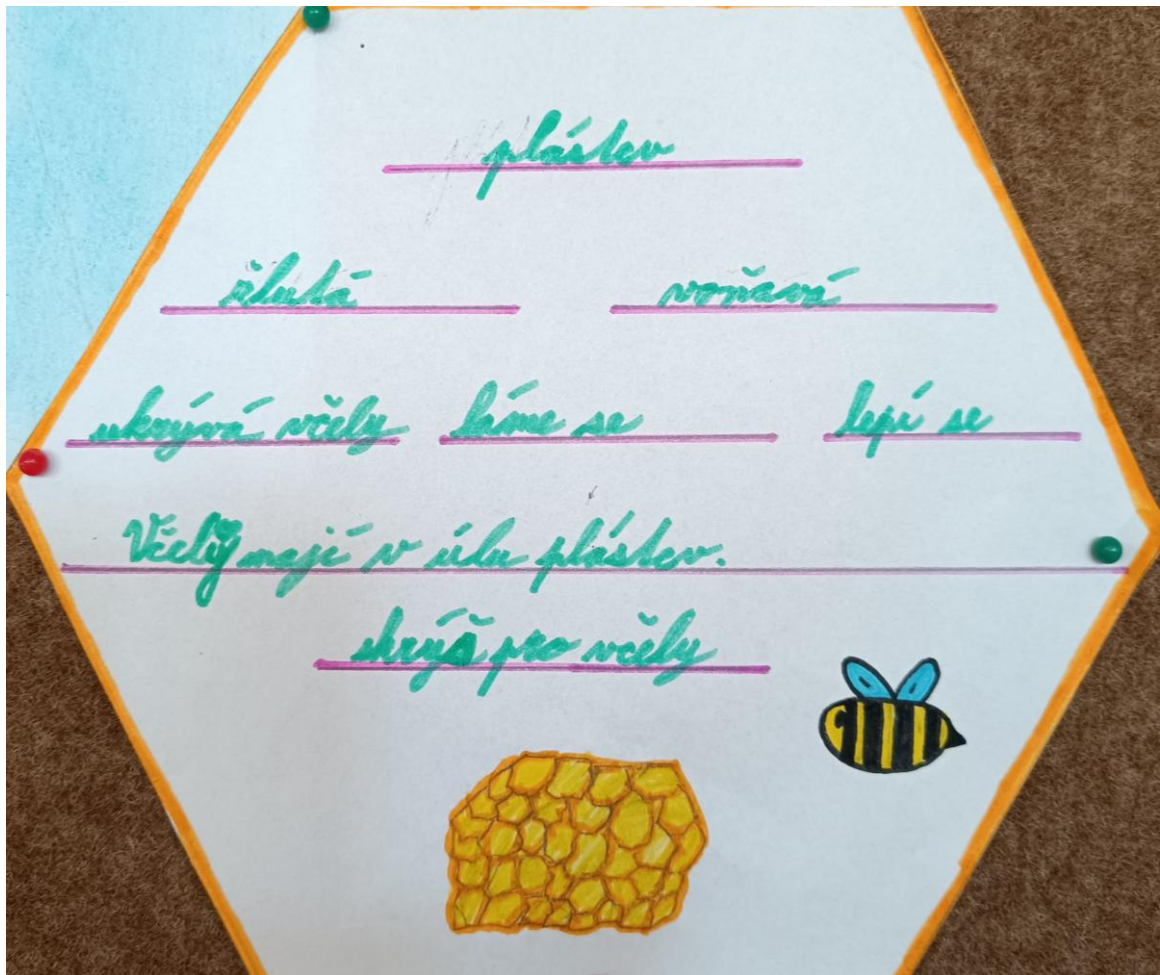 plástev
žlutá voňavá
ukrývá včely láme se lepí se
Včely mají v úlu plástev.
skrýš pro včely